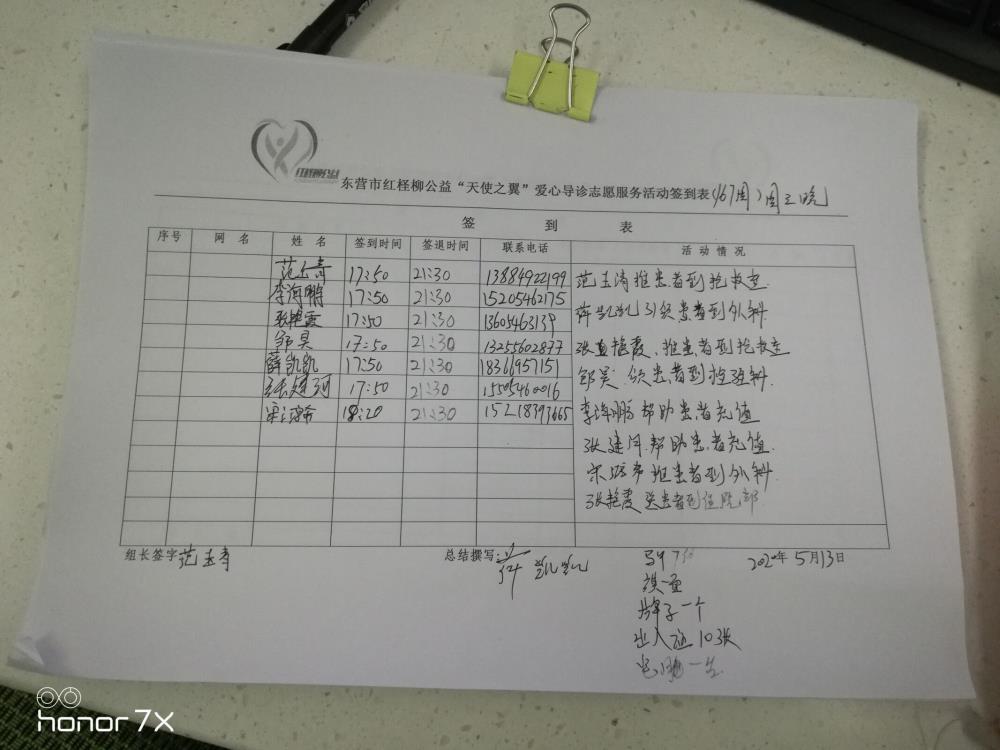 红柽柳公益
东营市红柽柳公益“天使之翼”爱心导诊志愿服务活动签到表(167周)周三晚
签 到 表
序号 网 名 姓 名 签到时间 签退时间 联系电话 活动情况
范玉青 17:50 21:30 13884922199 范玉清推患者到抢救室
李海鹏 17:50 21:30 15205462175 薛凯凯引领患者到外科
张艳霞 17:50 21:30 13605463139 张艳霞、推患者到抢救室
邹昊 17:50 21:30 13255602877 邹昊:领患者到检验科
薛凯凯 17:50 21:30 18366957151
张建河 17:50 21:30 15505460016 李海鹏帮助患者充值
18:20 21:30 15218393665 张建河帮助患者充值
推患者到外科
张艳霞 患者到住院部
组长签字 范玉青 总结撰写: 薛凯凯 2020年5月13日
牌子一个
出入证10张